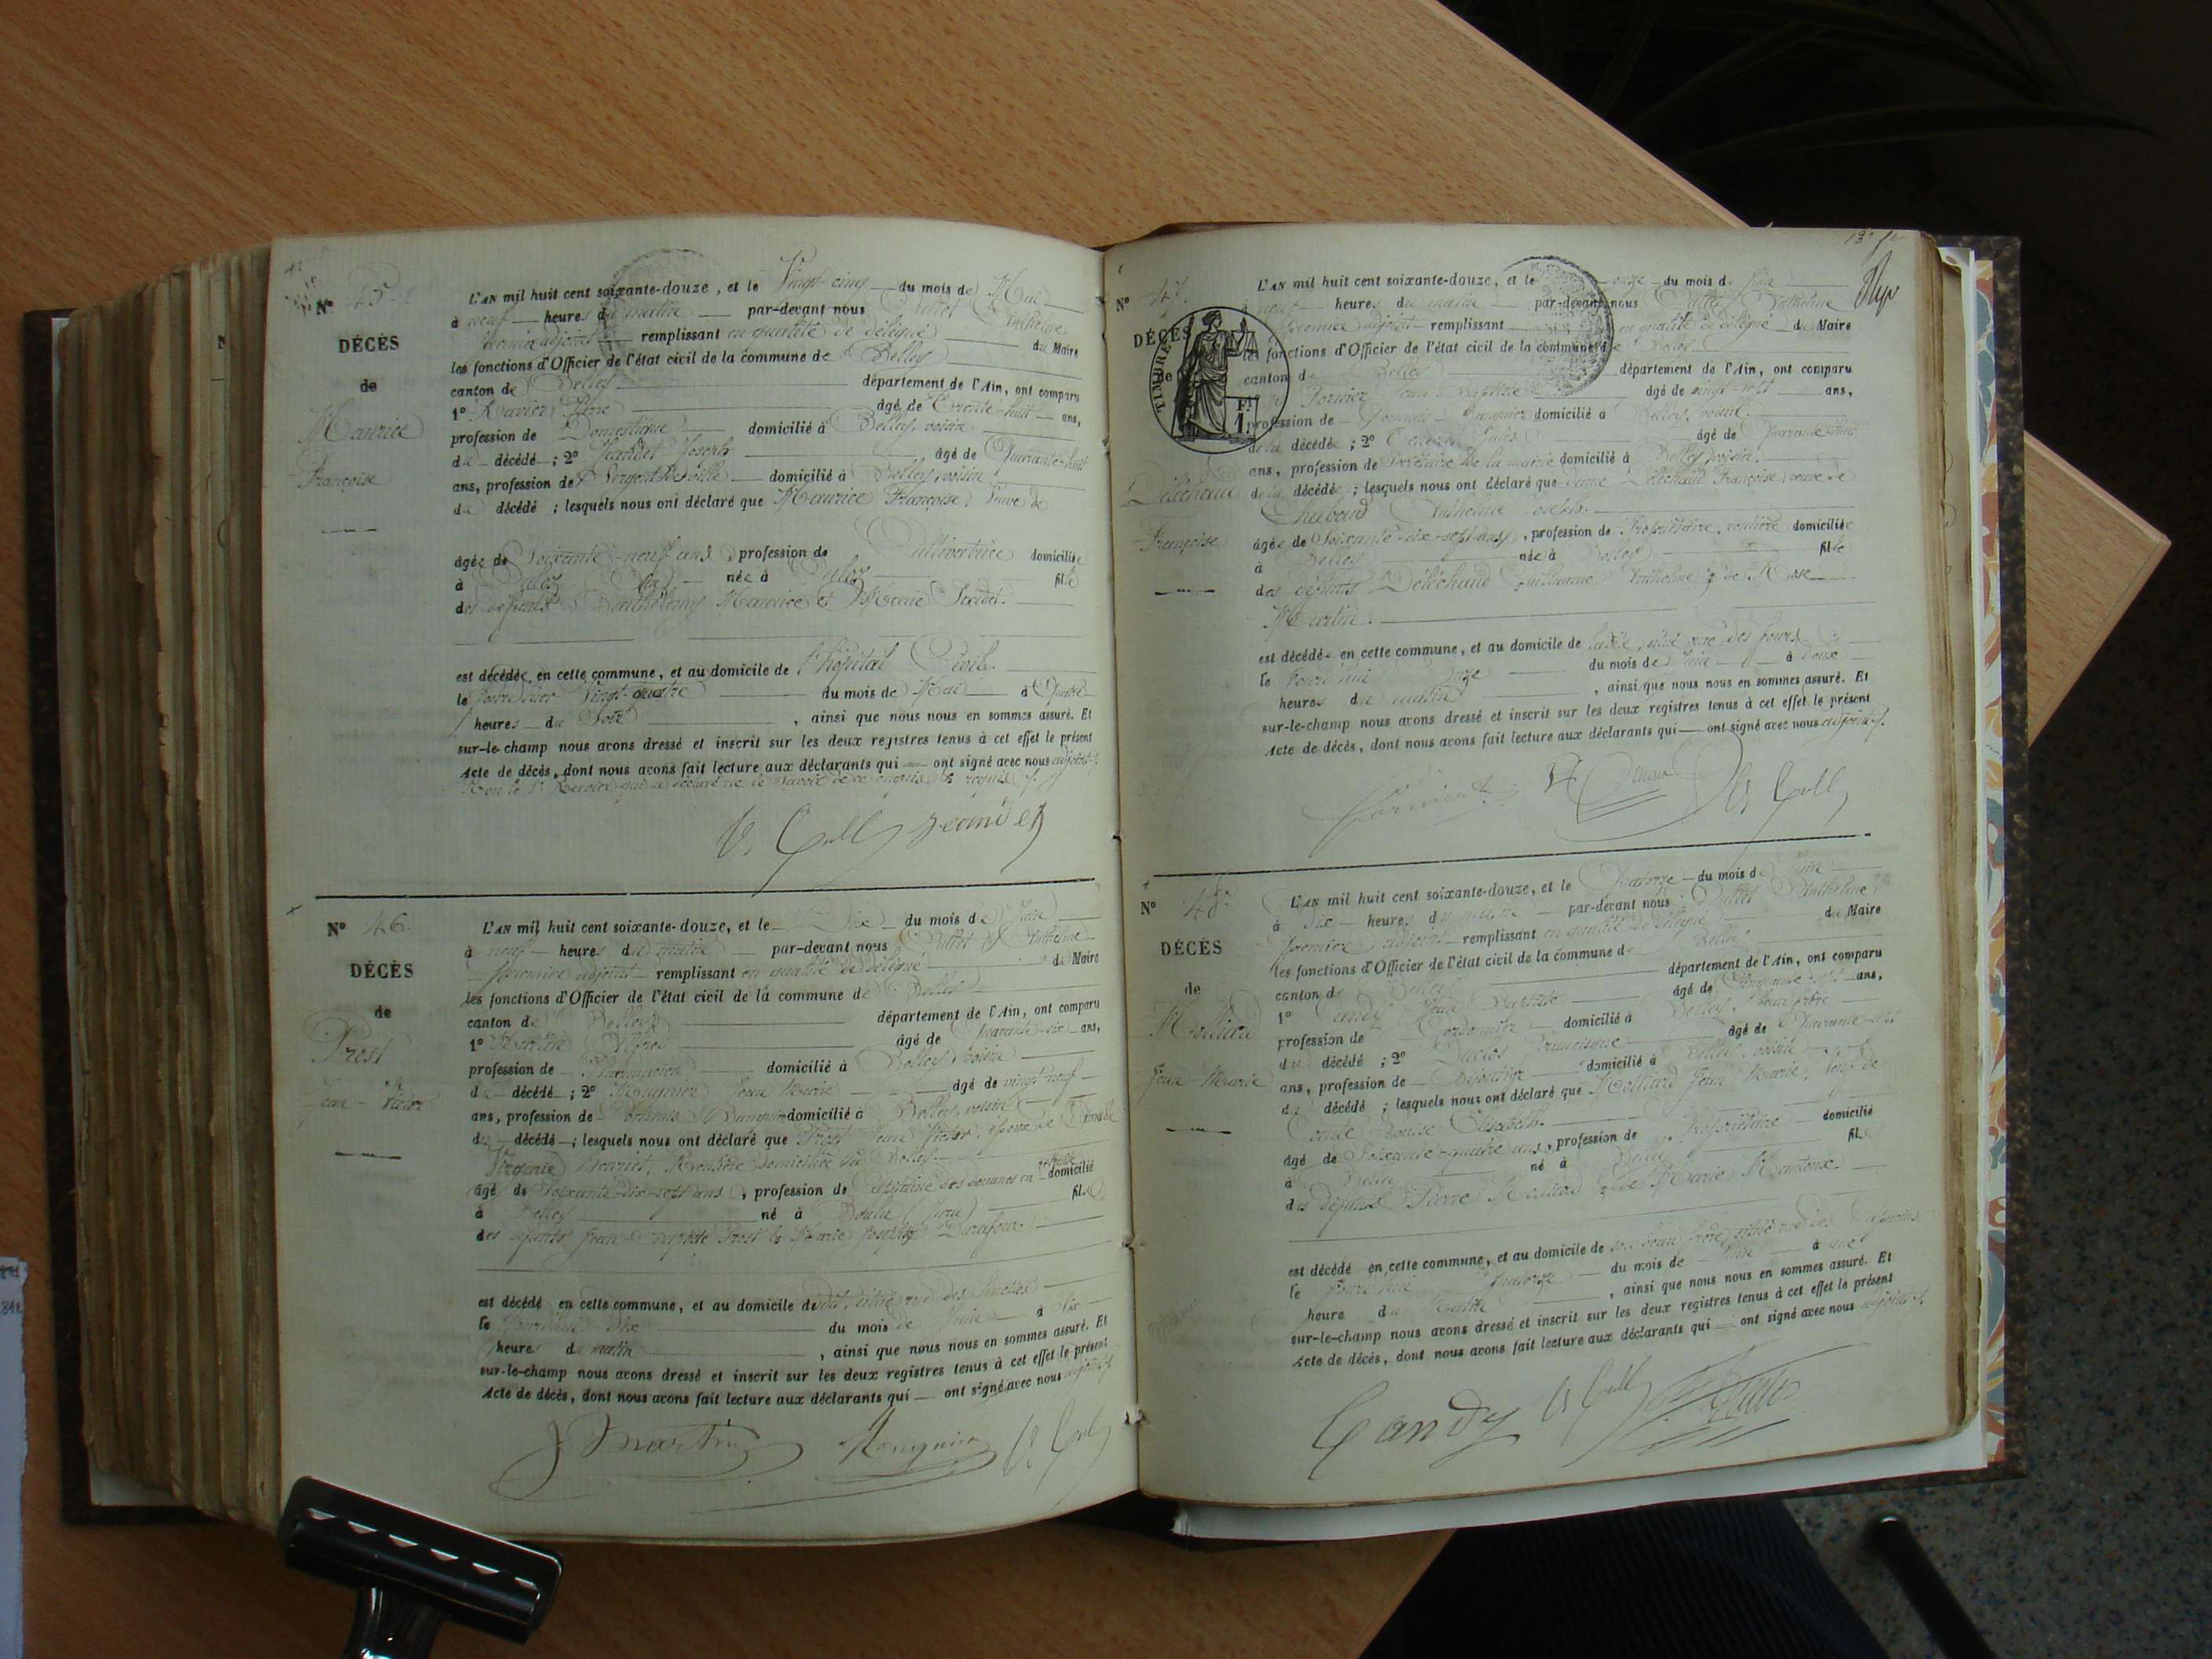 N° 45.
DÉCÈS
de
Maurice
Françoise
L'AN mil huit cent soixante-douze, et le Vingt cinq du mois de Mai
à neuf heures du matin par-devant nous Anthelme
adjoint remplissant en qualité de délégué du Maire
les fonctions d'Officier de l'état civil de la commune de Belley
canton de Belley département de l'Ain, ont comparu
1° Ravier Pierre âgé de Trente-huit ans,
profession de Domestique domicilié à Belley, voisin
du décédé ; 2° Jeandet Joseph âgé de Quarante-huit
ans, profession de Sergent de ville domicilié à Belley, voisin
du décédé ; lesquels nous ont déclaré que Maurice Françoise, Veuve de
âgée de Soixante-neuf ans profession de Cultivatrice domiciliée
à Culoz (Ain) née à Culoz fille
des défunts Barthélemy Maurice et Marie
est décédée en cette commune, et au domicile de l'hôpital Civil.
le jour d'hier Vingt-quatre du mois de Mai à Quatre
heures du Soir , ainsi que nous nous en sommes assuré. Et
sur-le-champ nous avons dressé et inscrit sur les deux registres tenus à cet effet le présent
Acte de décès, dont nous avons fait lecture aux déclarants qui ont signé avec nous adjoint
Non le Sr Ravier qui a déclaré ne le savoir de ce enquis et requis
Jeandet
N° 46.
DÉCÈS
de
Prost
Jean-Victor
L'AN mil huit cent soixante-douze, et le Dix du mois de Juin
à neuf heures du matin par-devant nous Anthelme
premier adjoint remplissant en qualité de délégué du Maire
les fonctions d'Officier de l'état civil de la commune de Belley
canton de Belley département de l'Ain, ont comparu
1° Martin âgé de Quarante-six ans,
profession de Pharmacien domicilié à Belley, voisin
du décédé ; 2° Mugnier Jean Marie âgé de vingt-neuf
ans, profession de Commis Banquier domicilié à Belley, voisin
du décédé ; lesquels nous ont déclaré que Prost Jean Victor, époux de
Virginie Rentière domiciliée à Belley
âgé de Soixante-dix-sept ans, profession de Capitaine des douanes en retraite domicilié
à Belley né à (Jura) fils
des défunts Jean-Baptiste Prost & Marie Josephte
est décédé en cette commune, et au domicile dudit, situé rue des
le jourd'hui dix du mois de Juin à Six
heures du matin , ainsi que nous nous en sommes assuré. Et
sur-le-champ nous avons dressé et inscrit sur les deux registres tenus à cet effet le présent
Acte de décès, dont nous avons fait lecture aux déclarants qui ont signé avec nous adjoint
J Martin Mugnier
N° 47.
DÉCÈS
de
TIMBRE
F.
1
Délechaud
Françoise
L'AN mil huit cent soixante-douze, et le onze du mois de Juin
à neuf heures du matin par-devant nous Anthelme
premier adjoint remplissant en qualité de délégué du Maire
les fonctions d'Officier de l'état civil de la commune de Belley
canton de Belley département de l'Ain, ont comparu
1° Fornier Jean Baptiste âgé de vingt-sept ans,
profession de Commis Banquier domicilié à Belley, voisin
de la décédée ; 2° Jules âgé de Quarante-huit
ans, profession de Secrétaire de la mairie domicilié à Belley, voisin
de la décédée ; lesquels nous ont déclaré que Dame Délechaud Françoise, veuve de
Chaboud Anthelme Joseph.
âgée de Soixante-dix-sept ans, profession de Propriétaire, rentière domiciliée
à Belley née à Belley fille
des défunts Délechaud Guillaume Anthelme & de Rose
Martin.
est décédée en cette commune, et au domicile de ladite, situé rue des fours
le jourd'hui onze du mois de Juin à Deux
heures du matin , ainsi que nous nous en sommes assuré. Et
sur-le-champ nous avons dressé et inscrit sur les deux registres tenus à cet effet le présent
Acte de décès, dont nous avons fait lecture aux déclarants qui ont signé avec nous adjoint
Fornier
N° 48.
DÉCÈS
de
Molliard
Jean-Marie
L'AN mil huit cent soixante-douze, et le Quatorze du mois de Juin
à Six heures du par-devant nous Anthelme
premier adjoint remplissant en qualité de délégué du Maire
les fonctions d'Officier de l'état civil de la commune de Belley
canton de Belley département de l'Ain, ont comparu
1° Candy Jean Baptiste âgé de Cinquante-sept ans,
profession de Cordonnier domicilié à Belley, beau frère
du décédé ; 2° Duclos Francisque âgé de Quarante-sept
ans, profession de Bijoutier domicilié à Belley, voisin
du décédé ; lesquels nous ont déclaré que Molliard Jean Marie, Veuf de
Comte Louise Elisabeth.
âgé de Soixante-quatre ans, profession de Propriétaire domicilié
à Belley né à Belley fils
des défunts Pierre Molliard & de Marie
est décédé en cette commune, et au domicile de son beau frère, situé rue des
le jourd'hui Quatorze du mois de Juin à une
heure du Matin , ainsi que nous nous en sommes assuré. Et
sur-le-champ nous avons dressé et inscrit sur les deux registres tenus à cet effet le présent
Acte de décès, dont nous avons fait lecture aux déclarants qui ont signé avec nous adjoint
Candy